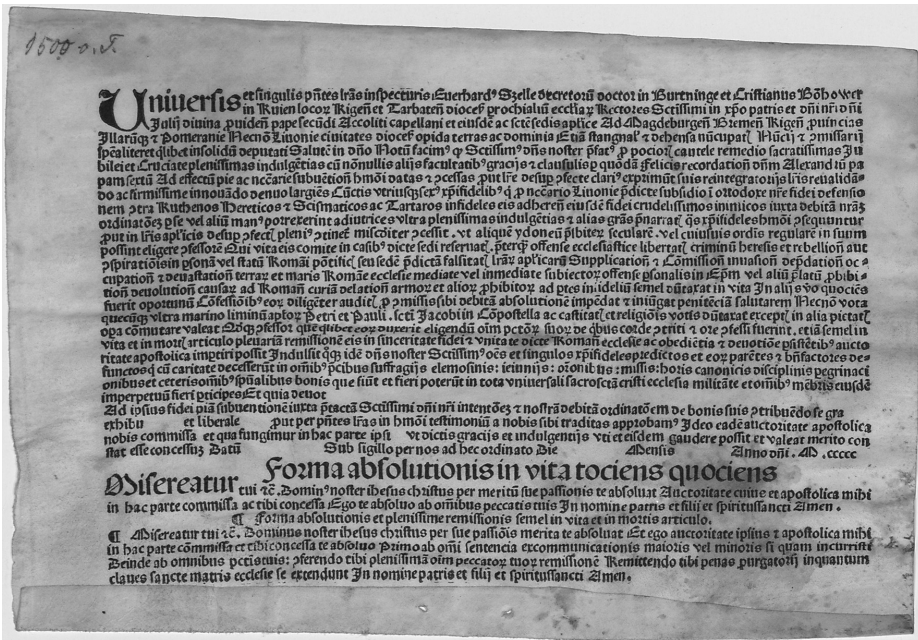 1500 o. J.
Universis et singulis pñtes lrãs inspecturis Everhardꝰ Szelle decretorũ doctor in Burtninge et Cristianus Bõhower
in Ruien locoꝝ Rigeñ et Tarbateñ dioceß ꝓchialiũ eccliaꝝ Rectores Sctissimi in xp̃o patris et dñi nr̃i dñi
Julij divina ꝓuideñ pape secũdi Acoliti capellani et eiusdẽ ac sctẽ sedis aplice Ad Magdeburgeñ Bremeñ Rigeñ ꝓuincias
Illarũqꝫ et Pomeranie Necnõ Livonie civitates dioceß opida terras ac dominia
spẽaliter et q̃libet insolidũ deputati Salutẽ in dño Notũ facimꝰ qꝫ Sctissimꝰ dñs noster p̃fatꝰ ꝓ pociori cautele remedio sacratissimas Ju
bilei et Cruciate plenissimas indulgẽtias cũ nõnullis alijs facultatibꝰ gracijs et clausulis ꝑ quõdã felicis recordationis dñm Alexandrũ pa
pam sextũ Ad effectũ pie ac necẽarie subuẽtionis hmõi datas et ↄcessas
do ac firmissime innouãdo denuo largiẽs Cũctis vtriusqꝫ sexꝰ xp̃ifidelibꝰ q̃ ꝓ necẽario Livonie p̃dicte subsidio ĩ ortodoxe nr̃e fidei defensio
nem ↄtra Ruthenos Hereticos et Scismaticos ac Tartaros infideles eis adhereñ eiusdẽ fidei crudelissimos inimicos iuxta debitã nrãꝫ
ordinatõeꝫ ꝑ se vel aliũ manꝰ porrexerint adiutrices vltra plenissimas indulgẽtias et alias grãs p̃narratꝭ
possint eligere ↄfessorẽ Qui vita eis comite in casibꝰ dicte sedi reseruatꝭ ꝓterqꝫ offense ecclesiastice libertatꝭ criminũ heresis et rebellioñ aut
ↄspirationis in ꝑsonã vel statũ Romani põtificꝭ seu sedẽ p̃dictã falsitatꝭ lrãꝝ aplicarũ Supplicationũ et Cõmissionũ invasionũ dep̃dationũ oc-
cupationũ et deuastationũ terraꝝ et maris Romãe ecclesie mediate vel inmediate subiectoꝝ offense ꝑsonalis in Ep̃m vel aliũ p̃latũ ꝓhibi-
tioñ deuolutioñ causaꝝ ad Romanã curiã delationũ armoꝝ et alioꝝ ꝓhibitoꝝ ad ꝑtes infideliũ semel dũtaxat in vita In alijs ꝟo quociẽs
fuerit oportunũ Cõfessioĩbꝰ eoꝝ diligẽter auditꝭ ꝓ ↄmissis sibi debitã absolutionẽ impẽdat et iniũgat penitẽciã salutarem Necnõ vota
quecũqꝫ vltra marino liminũ aploꝝ Petri et Pauli . sctĩ Jacobi in Cõpostella ac castitatꝭ et religiõis votis dũtaxat exceptꝭ in alia pietatꝭ
opa cõmutare valeat
vita et in mortꝭ articulo plenariã remissionẽ eis in sinceritate fidei et vnitate dicte Romanẽ ecclesie ac obedientia et deuotiõe ꝑsistẽtibꝰ aucto
ritate apostolica imꝑtiri possit Indulsit qꝫ idẽ dñs noster Sctissimꝰ oẽs et singulos xp̃ifideles predictos et eoꝝ parẽtes et bñfactores de-
functos q̃ cũ caritate decesserũt in oĩbꝰ ꝑcibus suffragijs elemosinis: ieiunijs: orõnibus: missis: horis canonicis disciplinis pegrinaci
onibus et ceteris oĩbꝰ spũalibus bonis que fiũt et fieri poterũt in tota vniuersali sacrosctã cristi ecclesia militãte et oĩbꝰ mẽbris eiusdẽ
imperpetuũ fieri ꝑticipes Et quia deuot
Ad ipsius fidei piã subuentionẽ iuxta p̃tactã Sctissimi dñi nr̃i intentõeꝫ et nostrã debitã ordinatõem de bonis suis ↄtribuẽdo se gra
exhibu et liberale ꝓut per pñtes lrãs in hmõi testimoniũ a nobis sibi traditas approbamꝰ Ideo eadẽ auctoritate apostolica
nobis commissa et qua fungimur in hac parte ipsi vt dictis gracijs et indulgentijs vti et eisdem gaudere possit et valeat merito con
stat esse concessuꝫ Datũ Sub sigillo per nos ad hec ordinato Die Mensis Anno dñi . M . ccccc
Forma absolutionis in vita tociens quociens
Misereatur tui ꝛc̃ . Dominꝰ noster ihesus christus per meritũ sue passionis te absoluat Auctoritate cuius et apostolica mihi
in hac parte commissa ac tibi concessa Ego te absoluo ab oĩbus peccatis tuis In nomine patris et filij et spiritussancti Amen .
¶ Forma absolutionis et plenissime remissionis semel in vita et in mortis articulo.
¶ Misereatur tui ꝛc̃ . Dominus noster ihesus christus per sue passiõis merita te absoluat Et ego auctoritate ipsius et apostolica mihi
in hac parte cõmissa et tibi concessa te absoluo Primo ab oĩ sentencia excommunicationis maioris vel minoris si quam incurristi
Deinde ab omnibus pctis tuis: ↄferendo tibi plenissimã oĩm peccatoꝝ tuoꝝ remissionẽ Remittendo tibi penas purgatorij inquantum
claues sancte matris ecclesie se extendunt In nomine patris et filij et spiritussancti Amen.